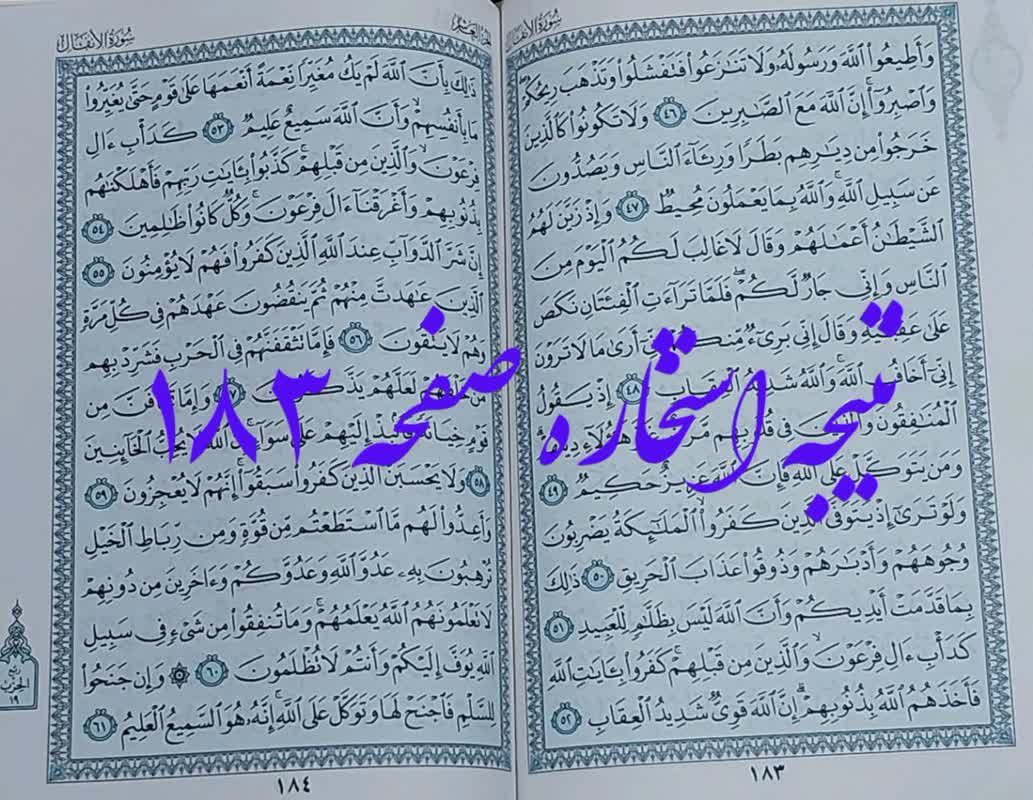 سُورَةُ الأَنفَال
وَأَطِيعُوا۟ ٱللَّهَ وَرَسُولَهُۥ وَلَا تَنَـٰزَعُوا۟ فَتَفْشَلُوا۟ وَتَذْهَبَ رِيحُكُمْ
وَٱصْبِرُوٓا۟ إِنَّ ٱللَّهَ مَعَ ٱلصَّـٰبِرِينَ ٤٦ وَلَا تَكُونُوا۟ كَٱلَّذِينَ
خَرَجُوا۟ مِن دِيَـٰرِهِم بَطَرًا وَرِئَآءَ ٱلنَّاسِ وَيَصُدُّونَ
عَن سَبِيلِ ٱللَّهِ وَٱللَّهُ بِمَا يَعْمَلُونَ مُحِيطٌ ٤٧ وَإِذْ زَيَّنَ لَهُمُ
ٱلشَّيْطَـٰنُ أَعْمَـٰلَهُمْ وَقَالَ لَا غَالِبَ لَكُمُ ٱلْيَوْمَ مِنَ
ٱلنَّاسِ وَإِنِّى جَارٌ لَّكُمْ فَلَمَّا تَرَآءَتِ ٱلْفِئَتَانِ نَكَصَ
عَلَىٰ عَقِبَيْهِ وَقَالَ إِنِّى بَرِىٓءٌ مِّنكُمْ إِنِّىٓ أَرَىٰ مَا لَا تَرَوْنَ
إِنِّىٓ أَخَافُ ٱللَّهَ وَٱللَّهُ شَدِيدُ ٱلْعِقَابِ ٤٨ إِذْ يَقُولُ
ٱلْمُنَـٰفِقُونَ وَٱلَّذِينَ فِى قُلُوبِهِم مَّرَضٌ غَرَّ هَـٰٓؤُلَآءِ دِينُهُمْ
وَمَن يَتَوَكَّلْ عَلَى ٱللَّهِ فَإِنَّ ٱللَّهَ عَزِيزٌ حَكِيمٌ ٤٩
وَلَوْ تَرَىٰٓ إِذْ يَتَوَفَّى ٱلَّذِينَ كَفَرُوا۟ ٱلْمَلَـٰٓئِكَةُ يَضْرِبُونَ
وُجُوهَهُمْ وَأَدْبَـٰرَهُمْ وَذُوقُوا۟ عَذَابَ ٱلْحَرِيقِ ٥٠ ذَٰلِكَ
بِمَا قَدَّمَتْ أَيْدِيكُمْ وَأَنَّ ٱللَّهَ لَيْسَ بِظَلَّـٰمٍ لِّلْعَبِيدِ ٥١
كَدَأْبِ ءَالِ فِرْعَوْنَ وَٱلَّذِينَ مِن قَبْلِهِمْ كَفَرُوا۟ بِـَٔايَـٰتِ ٱللَّهِ
فَأَخَذَهُمُ ٱللَّهُ بِذُنُوبِهِمْ إِنَّ ٱللَّهَ قَوِىٌّ شَدِيدُ ٱلْعِقَابِ ٥٢
١٨٣
سُورَةُ الأَنفَال
ذَٰلِكَ بِأَنَّ ٱللَّهَ لَمْ يَكُ مُغَيِّرًا نِّعْمَةً أَنْعَمَهَا عَلَىٰ قَوْمٍ حَتَّىٰ يُغَيِّرُوا۟
مَا بِأَنفُسِهِمْ وَأَنَّ ٱللَّهَ سَمِيعٌ عَلِيمٌ ٥٣ كَدَأْبِ ءَالِ
فِرْعَوْنَ وَٱلَّذِينَ مِن قَبْلِهِمْ كَذَّبُوا۟ بِـَٔايَـٰتِ رَبِّهِمْ فَأَهْلَكْنَـٰهُم
بِذُنُوبِهِمْ وَأَغْرَقْنَآ ءَالَ فِرْعَوْنَ وَكُلٌّ كَانُوا۟ ظَـٰلِمِينَ ٥٤
إِنَّ شَرَّ ٱلدَّوَآبِّ عِندَ ٱللَّهِ ٱلَّذِينَ كَفَرُوا۟ فَهُمْ لَا يُؤْمِنُونَ ٥٥
ٱلَّذِينَ عَـٰهَدتَّ مِنْهُمْ ثُمَّ يَنقُضُونَ عَهْدَهُمْ فِى كُلِّ مَرَّةٍ
وَهُمْ لَا يَتَّقُونَ ٥٦ فَإِمَّا تَثْقَفَنَّهُمْ فِى ٱلْحَرْبِ فَشَرِّدْ بِهِم
مَّنْ خَلْفَهُمْ لَعَلَّهُمْ يَذَّكَّرُونَ ٥٧ وَإِمَّا تَخَافَنَّ مِن
قَوْمٍ خِيَانَةً فَٱنۢبِذْ إِلَيْهِمْ عَلَىٰ سَوَآءٍ إِنَّ ٱللَّهَ لَا يُحِبُّ ٱلْخَآئِنِينَ
٥٨ وَلَا يَحْسَبَنَّ ٱلَّذِينَ كَفَرُوا۟ سَبَقُوٓا۟ إِنَّهُمْ لَا يُعْجِزُونَ ٥٩
وَأَعِدُّوا۟ لَهُم مَّا ٱسْتَطَعْتُم مِّن قُوَّةٍ وَمِن رِّبَاطِ ٱلْخَيْلِ
تُرْهِبُونَ بِهِۦ عَدُوَّ ٱللَّهِ وَعَدُوَّكُمْ وَءَاخَرِينَ مِن دُونِهِمْ
لَا تَعْلَمُونَهُمُ ٱللَّهُ يَعْلَمُهُمْ وَمَا تُنفِقُوا۟ مِن شَىْءٍ فِى سَبِيلِ
ٱللَّهِ يُوَفَّ إِلَيْكُمْ وَأَنتُمْ لَا تُظْلَمُونَ ٦٠ ۞ وَإِن جَنَحُوا۟
لِلسَّلْمِ فَٱجْنَحْ لَهَا وَتَوَكَّلْ عَلَى ٱللَّهِ إِنَّهُۥ هُوَ ٱلسَّمِيعُ ٱلْعَلِيمُ ٦١
١٨٤
الحزب
١٩
نتیجه استخاره صفحه ۱۸۳